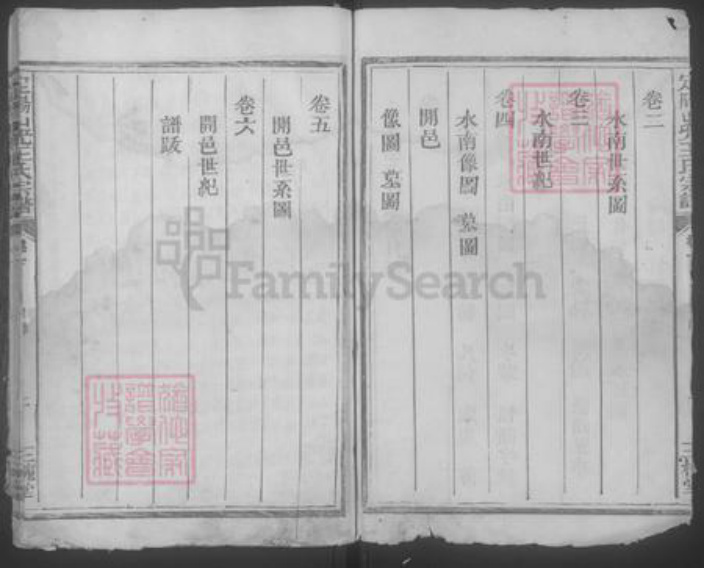 卷二
水南世系圖
卷三
水南世紀
卷四
水南像圖 墓圖
開邑
像圖 墓圖
卷五
開邑世系圖
卷六
開邑世紀
譜跋
FamilySearch